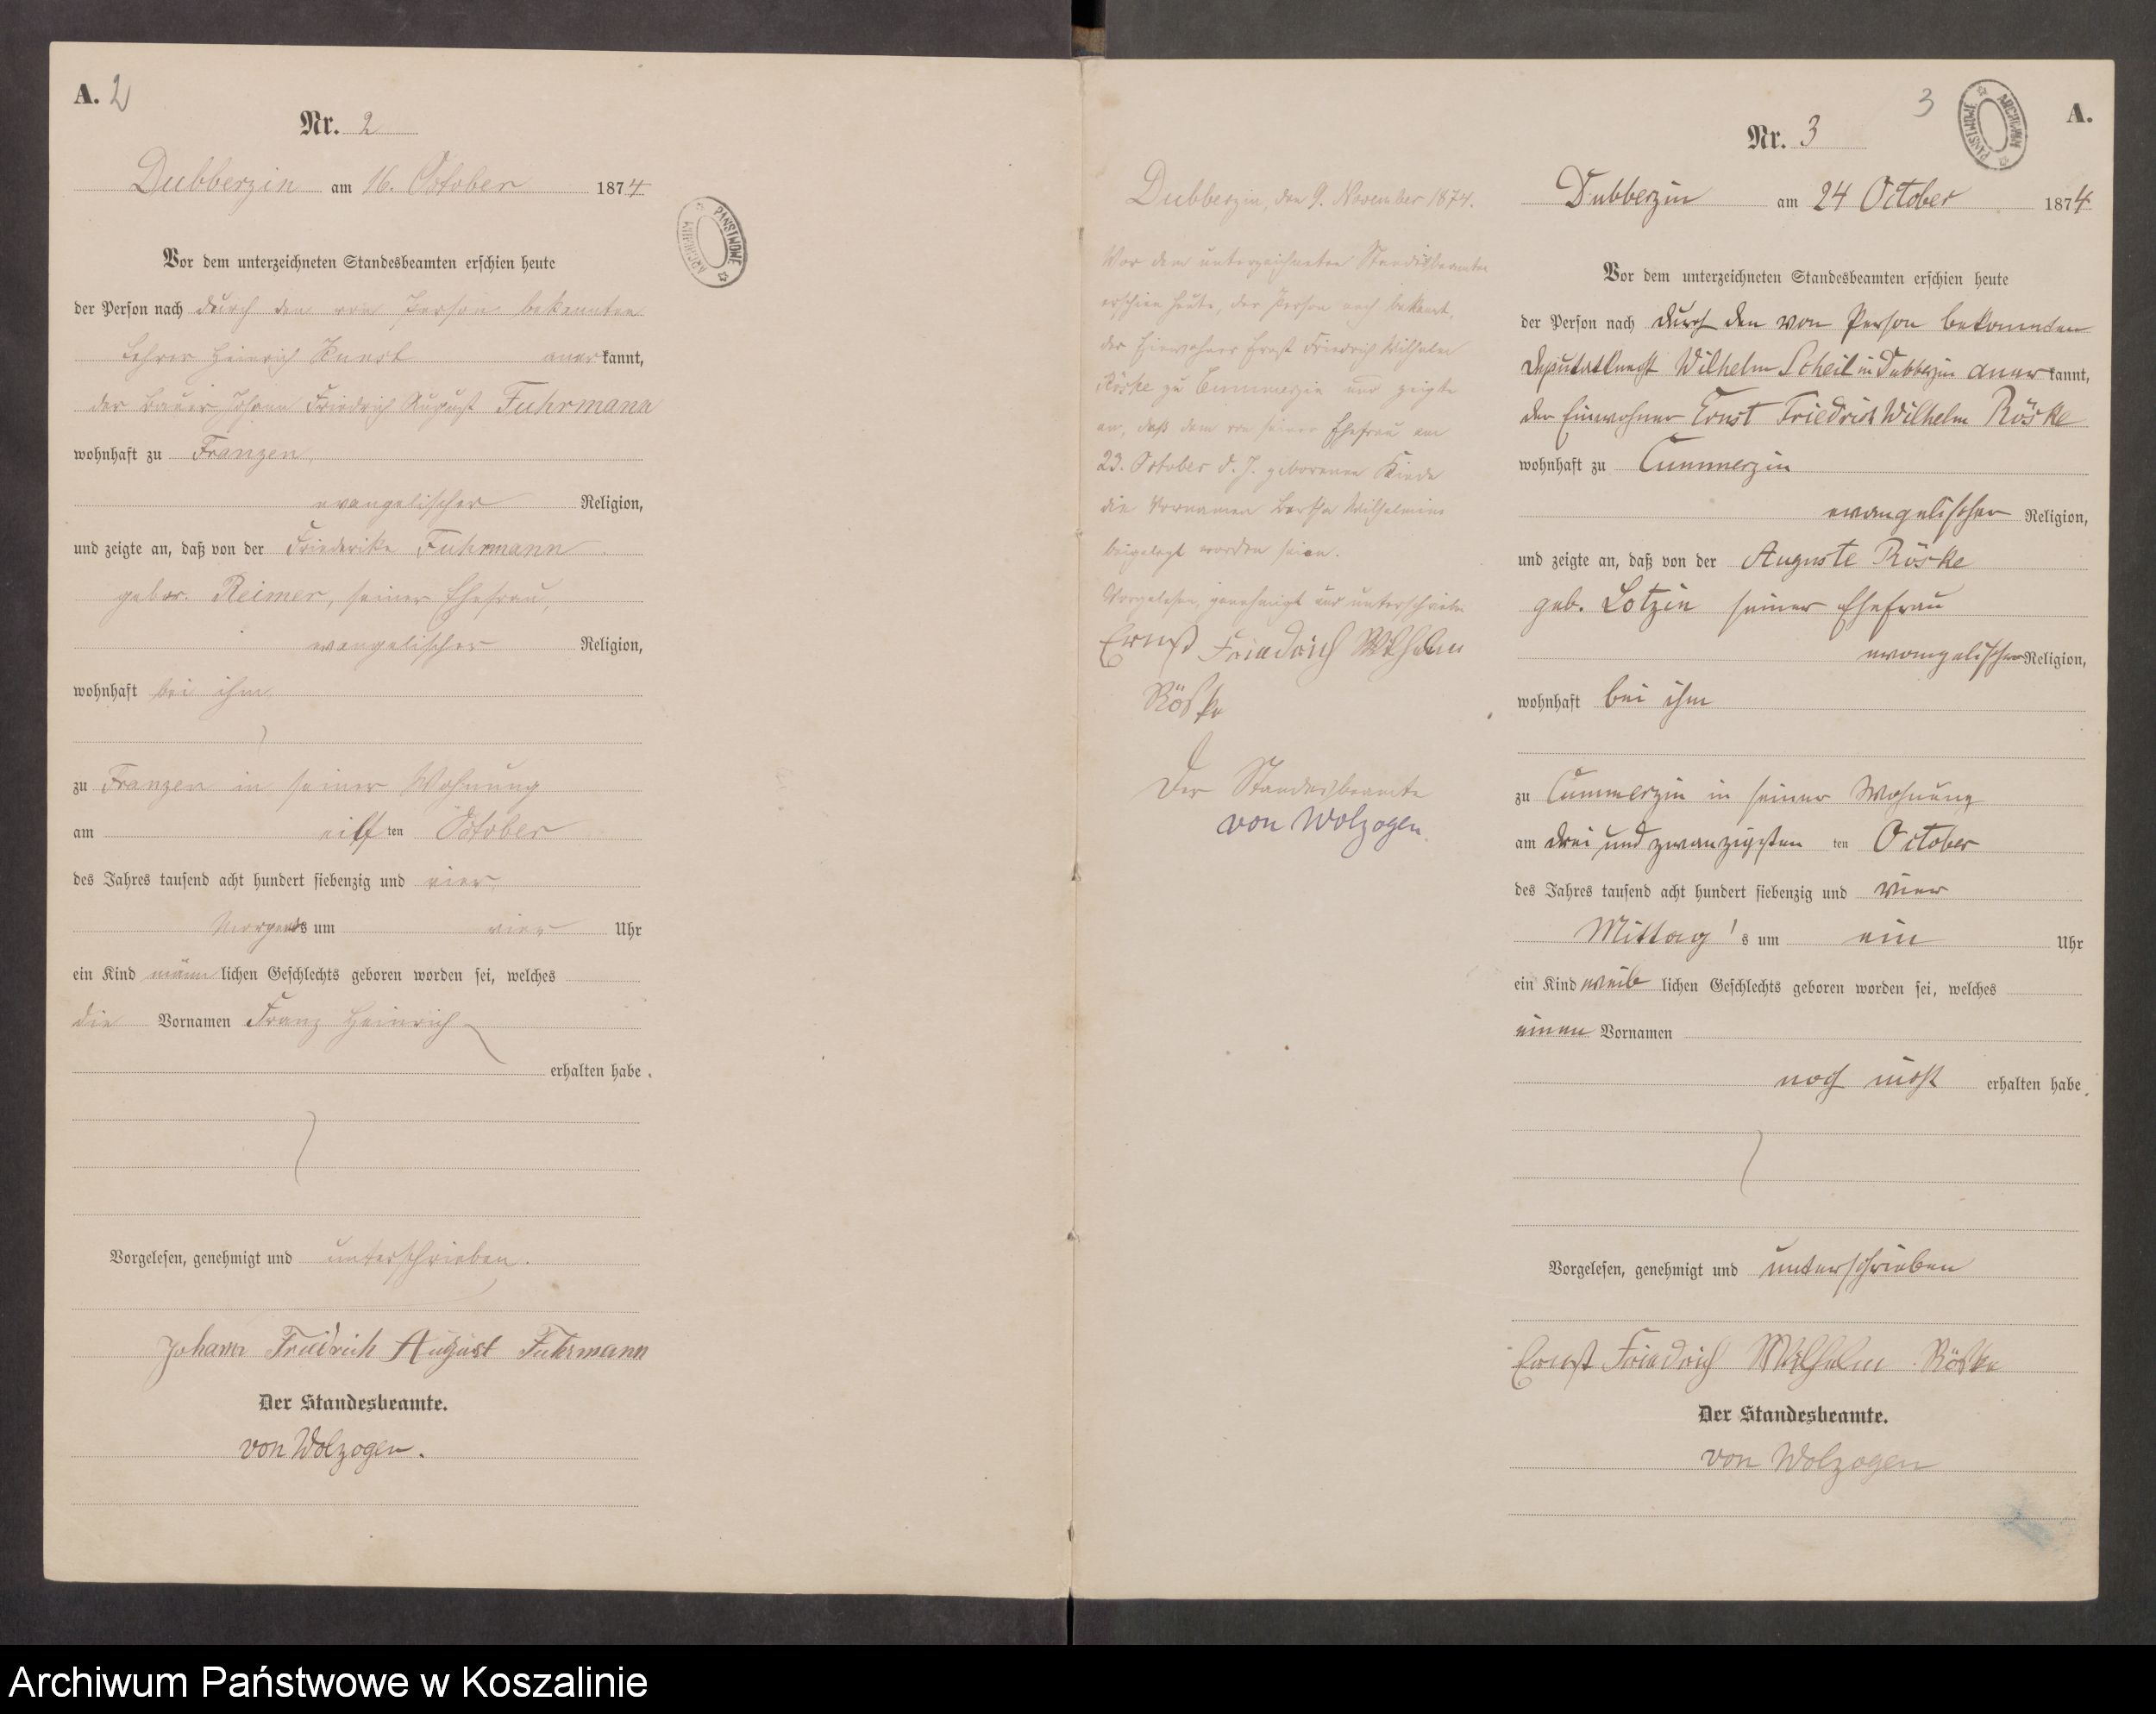 A. 2
Nr. 2
Dubberzin am 16. October 1874
Vor dem unterzeichneten Standesbeamten erschien heute
der Person nach durch den von Person bekannten
Lehrer Heinrich Kunst anerkannt,
der Bauer Johann Friedrich August Fuhrmann
wohnhaft zu Franzen,
evangelischer Religion,
und zeigte an, daß von der Friederike Fuhrmann
gebor. Reimer, seiner Ehefrau,
evangelischer Religion,
wohnhaft bei ihm
zu Franzen in seiner Wohnung
am eilf ten October
des Jahres tausend acht hundert siebenzig und vier
Morgens um vier Uhr
ein Kind männlichen Geschlechts geboren worden sei, welches
die Vornamen Franz Heinrich
erhalten habe.
Vorgelesen, genehmigt und unterschrieben.
Johann Friedrich August Fuhrmann
Der Standesbeamte.
von Wolzogen.
PAŃSTWOWE ARCHIWUM
Dubberzin, den 9. November 1874.
Vor dem unterzeichneten Standesbeamten
erschien heute, der Person nach bekannt,
der Einwohner Ernst Friedrich Wilhelm
Röske zu Cummerzin und zeigte
an, daß dem von seiner Ehefrau am
23. October d. J. geborenen Kinde
die Vornamen Bertha Wilhelmine
beigelegt worden seien.
Vorgelesen, genehmigt und unterschrieben
Ernst Friedrich Wilhelm
Röske
Der Standesbeamte
von Wolzogen.
3
PAŃSTWOWE ARCHIWUM
A.
Nr. 3
Dubberzin am 24 October 1874
Vor dem unterzeichneten Standesbeamten erschien heute
der Person nach durch den von Person bekannten
Deputatknecht Wilhelm Scheil in Dubberzin anerkannt,
der Einwohner Ernst Friedrich Wilhelm Röske
wohnhaft zu Cummerzin
evangelischer Religion,
und zeigte an, daß von der Auguste Röske
geb. Lotzin seiner Ehefrau
evangelischer Religion,
wohnhaft bei ihm
zu Cummerzin in seiner Wohnung
am drei und zwanzigsten ten October
des Jahres tausend acht hundert siebenzig und vier
Mittag's um ein Uhr
ein Kind weiblichen Geschlechts geboren worden sei, welches
einen Vornamen
noch nicht erhalten habe.
Vorgelesen, genehmigt und unterschrieben
Ernst Friedrich Wilhelm Röske
Der Standesbeamte.
von Wolzogen
Archiwum Państwowe w Koszalinie